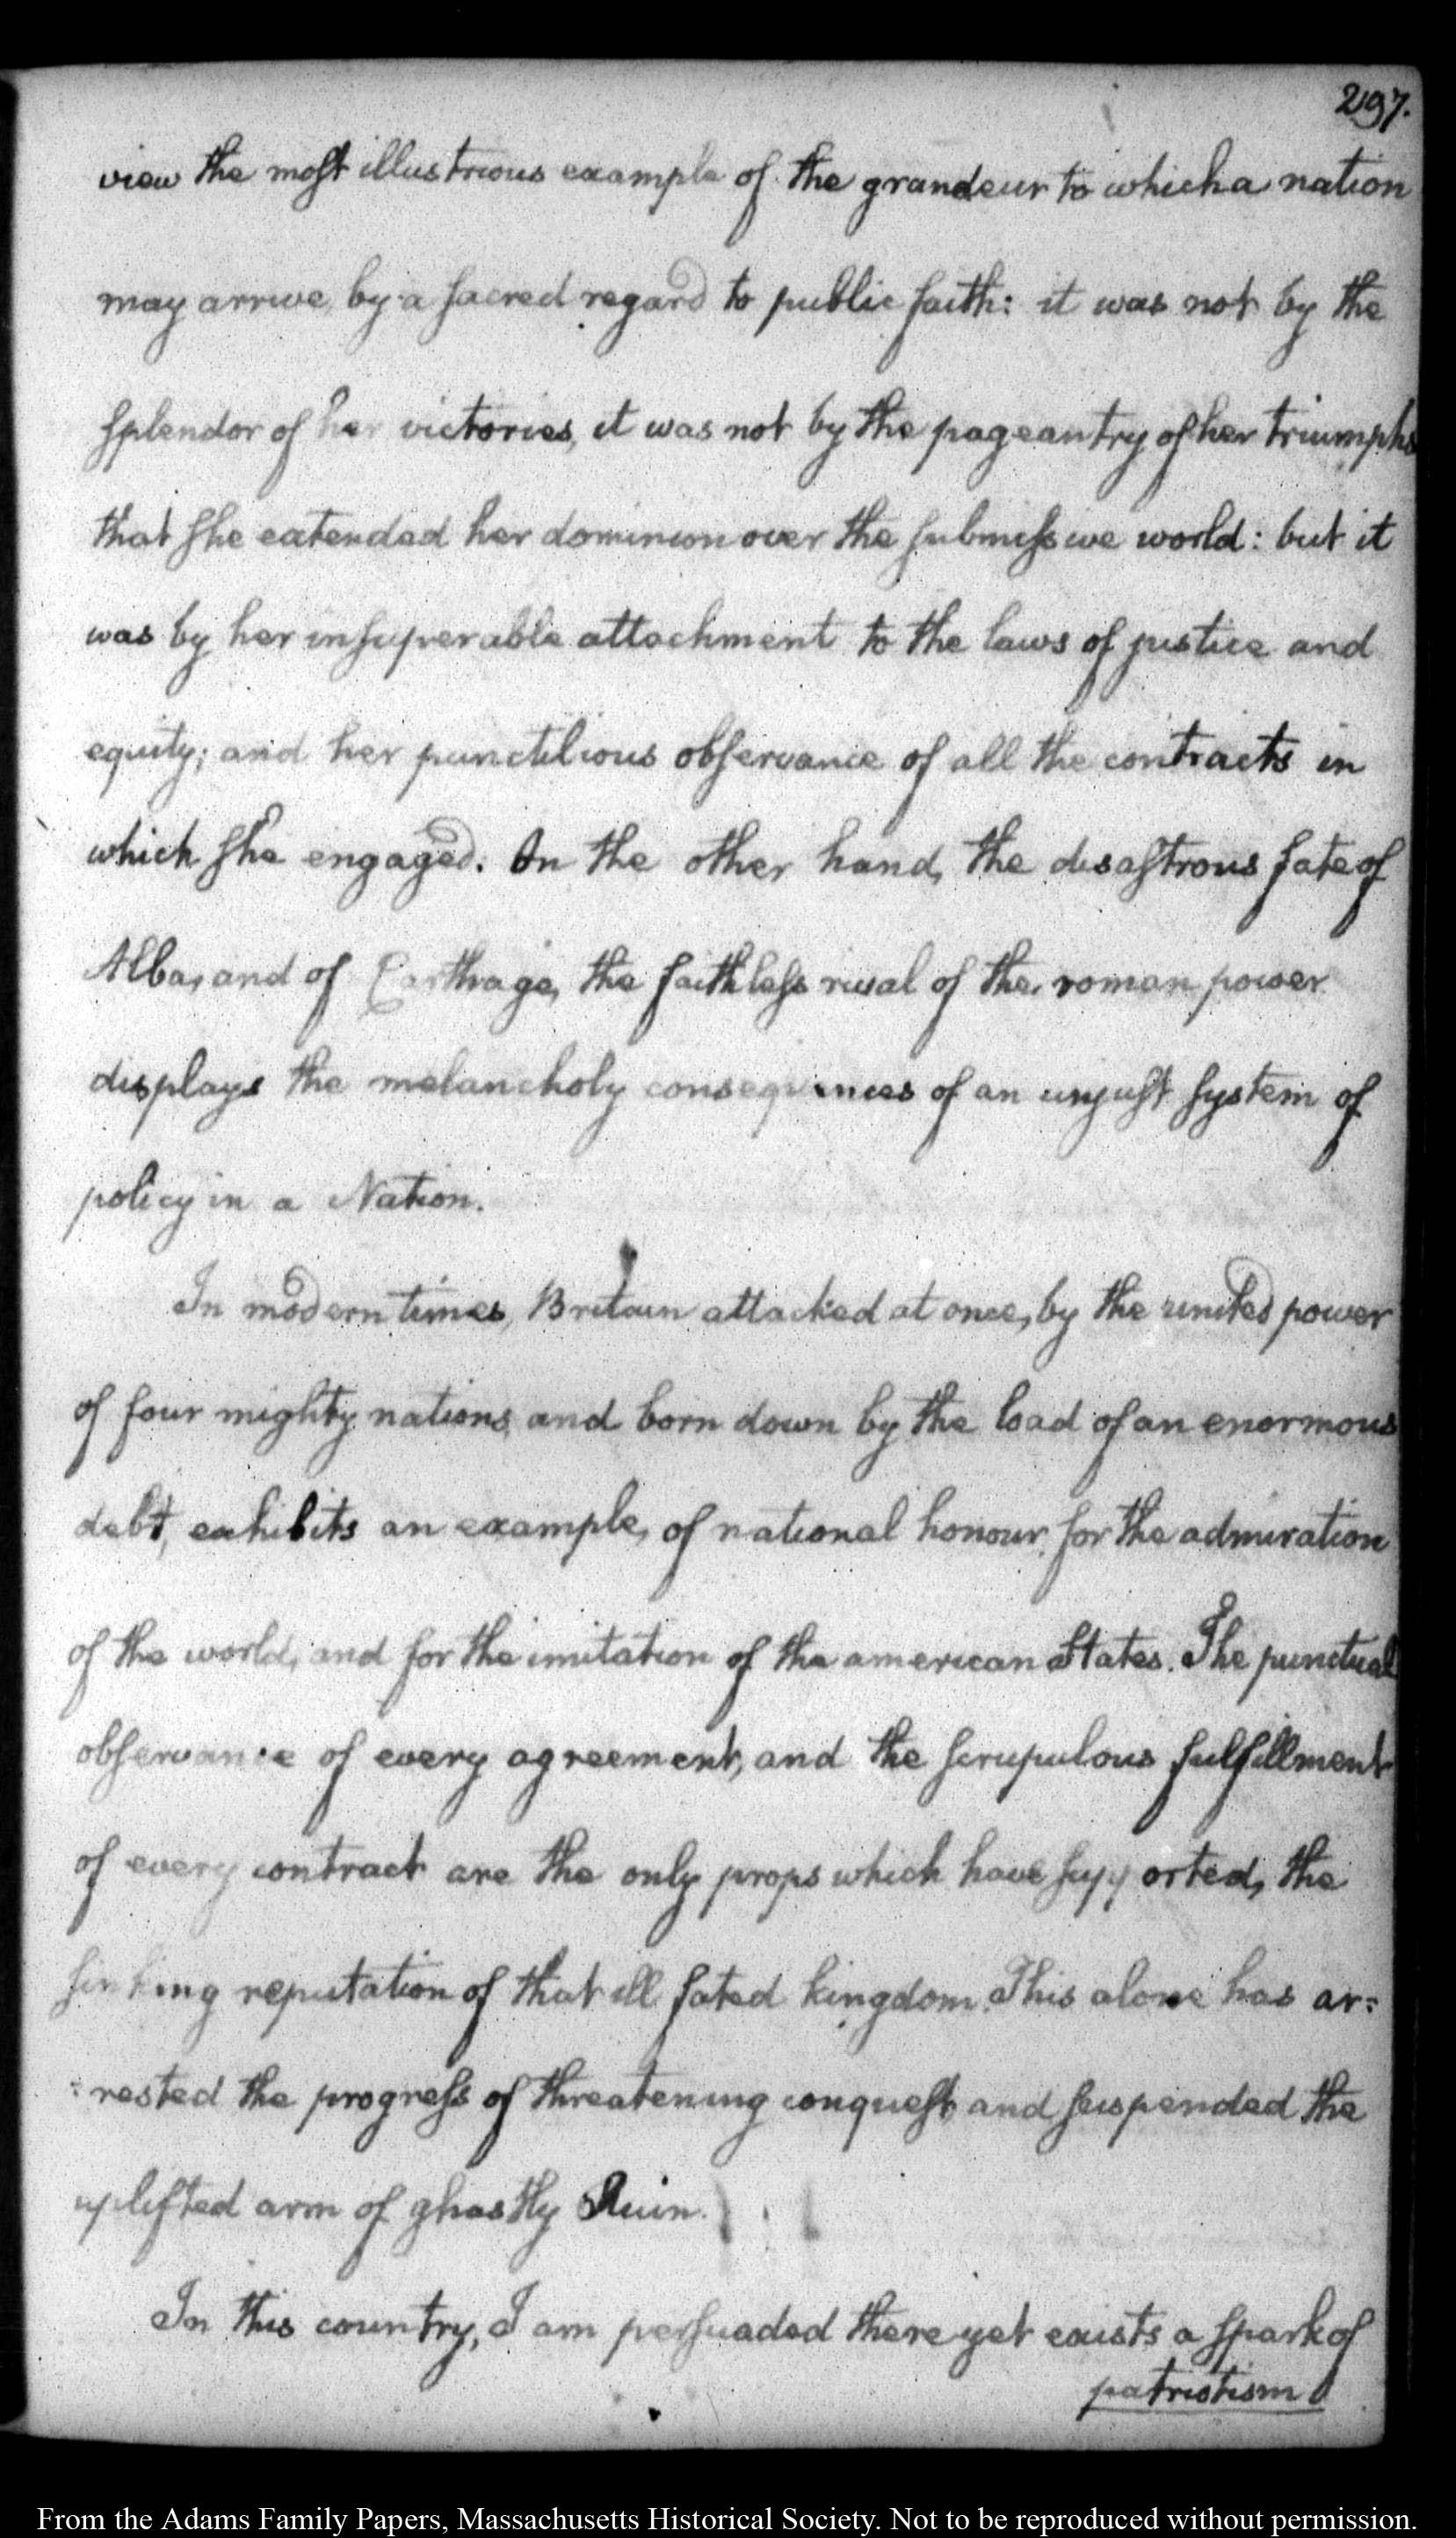 297.
view the most illustrious example of the grandeur to which a nation
may arrive, by a sacred regard to public faith: it was not by the
splendor of her victories, it was not by the pageantry of her triumphs
that she extended her dominion over the submissive world: but it
was by her insuperable attachment to the laws of justice and
equity; and her punctilious observance of all the contracts in
which she engaged. On the other hand, the disastrous fate of
Alba, and of Carthage, the faithless rival of the roman power
displays the melancholy consequences of an unjust system of
policy in a Nation.
In modern times, Britain attacked at once, by the united power
of four mighty nations, and born down by the load of an enormous
debt, exhibits an example, of national honour, for the admiration
of the world, and for the imitation of the american States. The punctual
observance of every agreement, and the scrupulous fulfillment
of every contract are the only props which have supported, the
sinking reputation of that ill fated kingdom. This alone has ar=
=rested the progress of threatening conquest, and suspended the
uplifted arm of ghastly Ruin.
In this country, I am persuaded there yet exists a spark of
patriotism
From the Adams Family Papers, Massachusetts Historical Society. Not to be reproduced without permission.